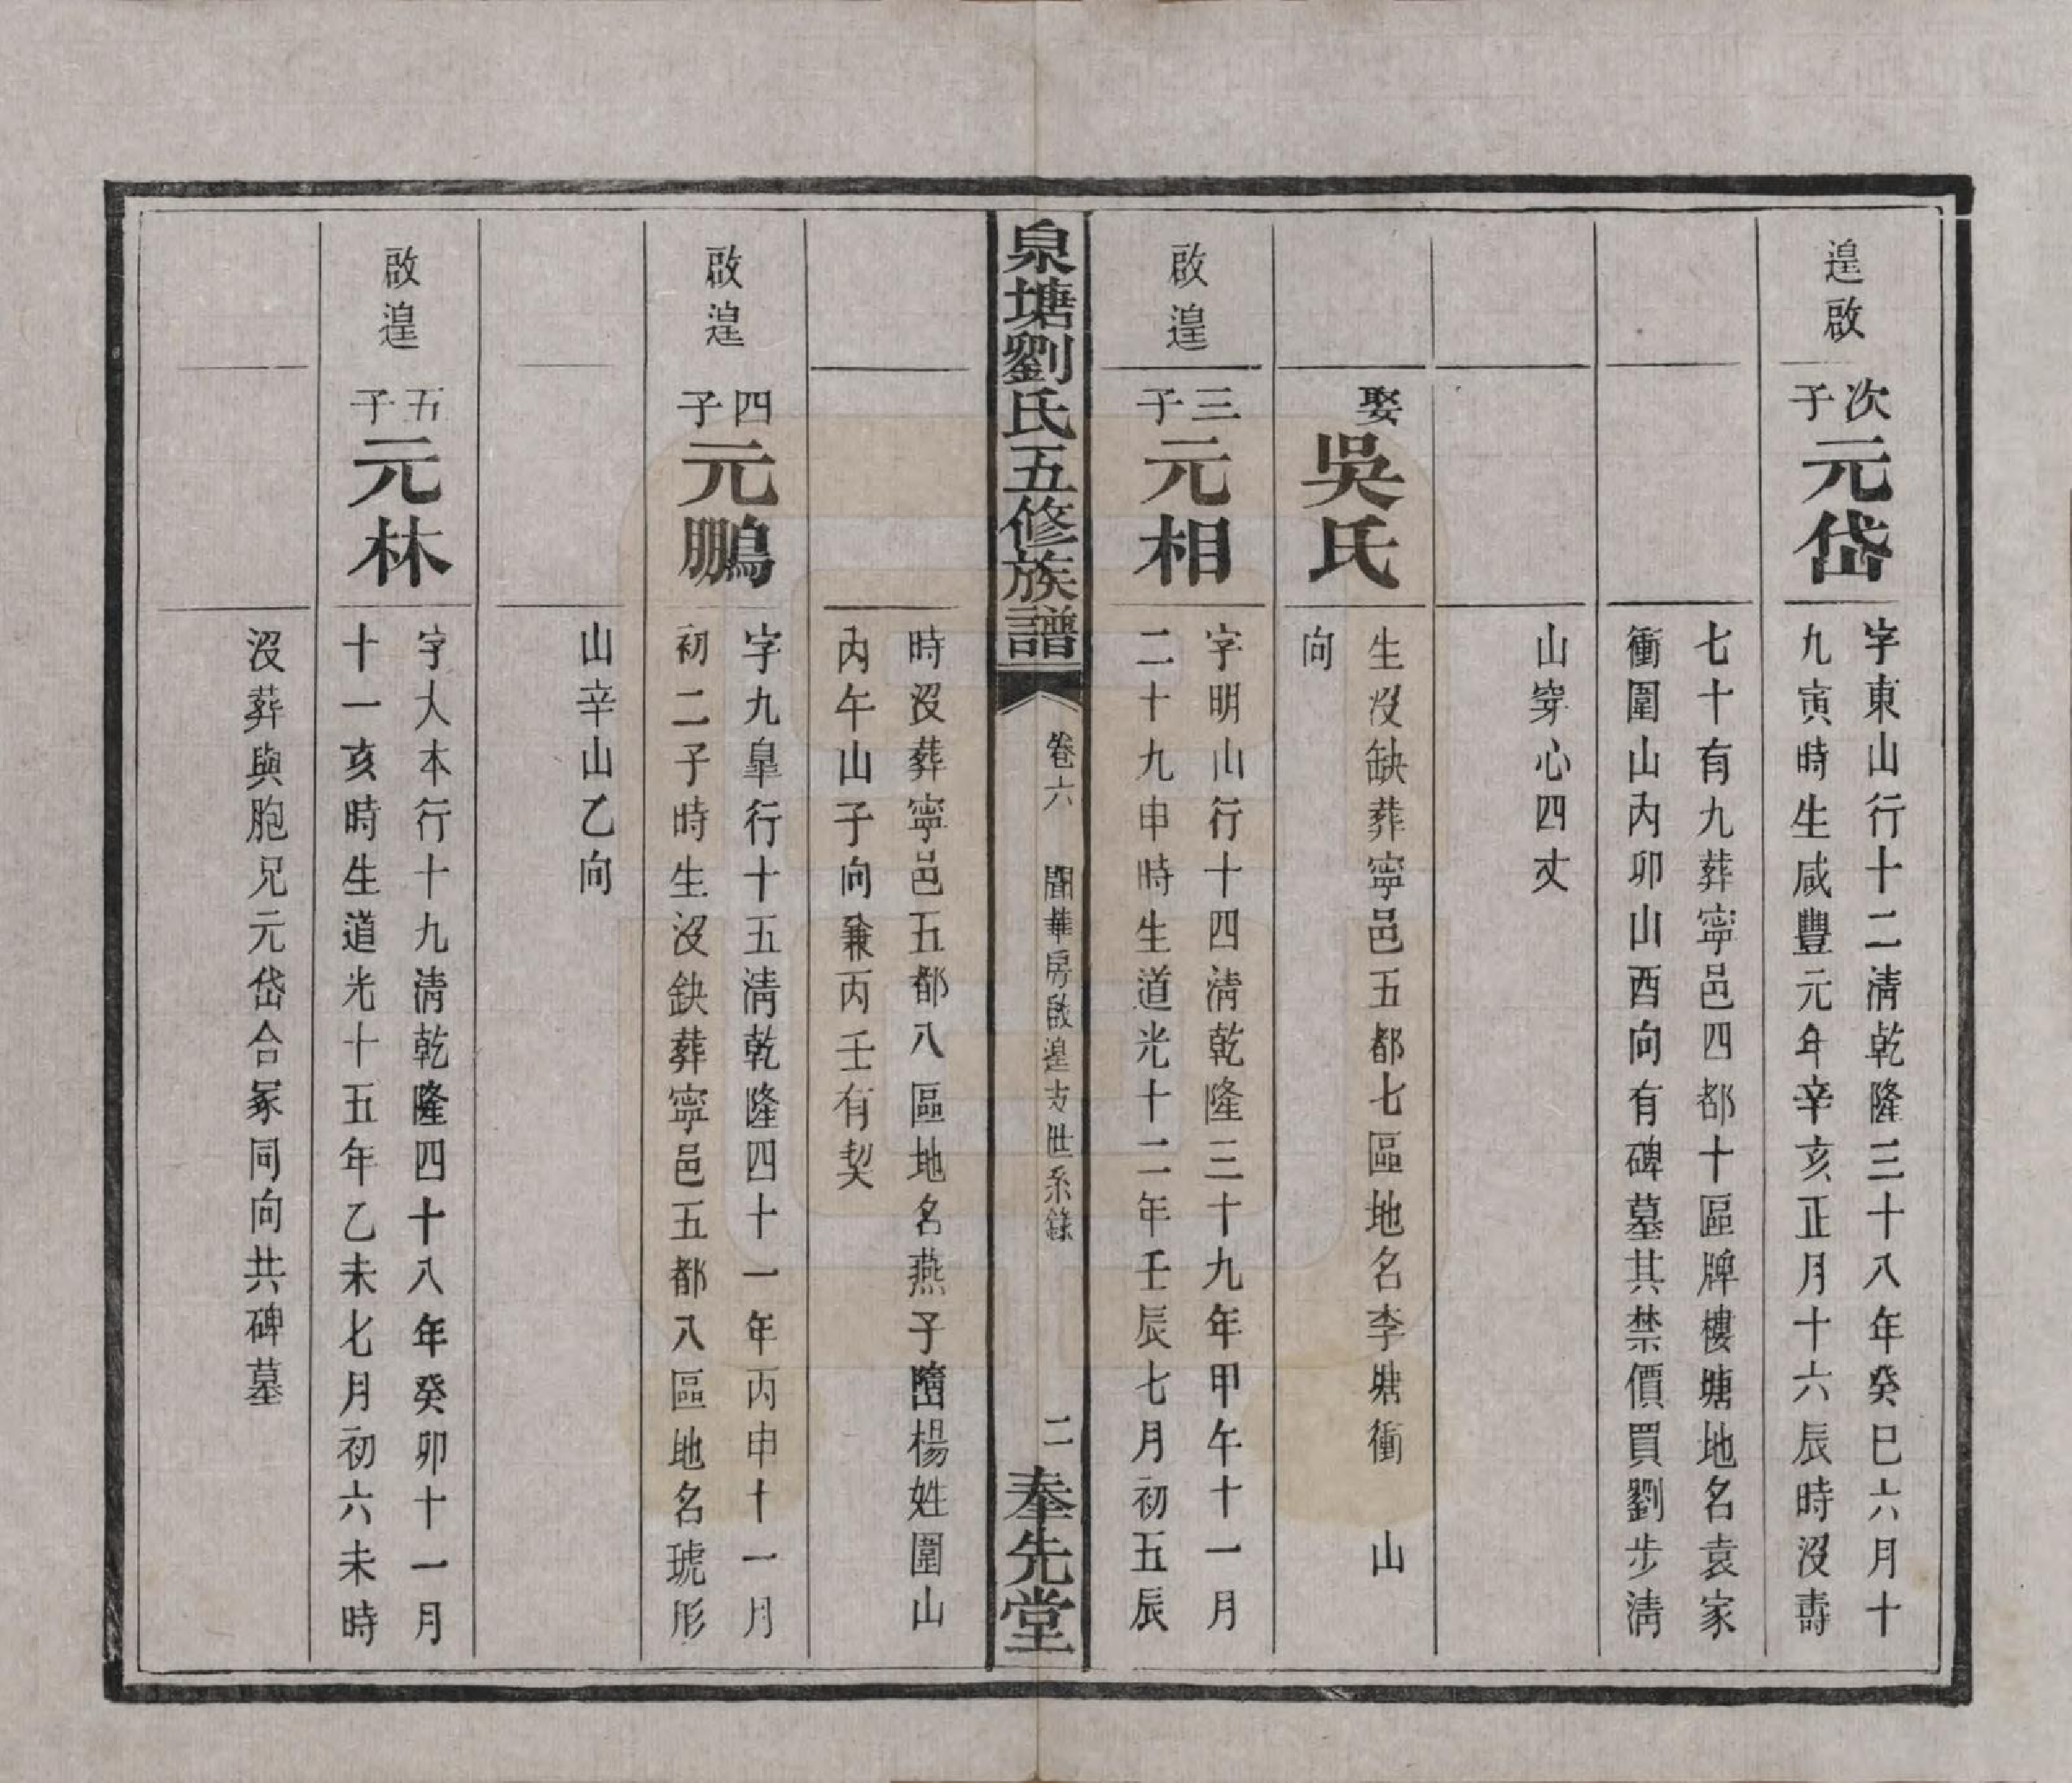 遑啟
次子
元岱
字東山行十二清乾隆三十八年癸巳六月十
九寅時生咸豐元年辛亥正月十六辰時沒壽
七十有九葬寧邑四都十區牌樓塘地名袁家
衝圍山內卯山酉向有碑墓其禁價買劉步清
山穿心四丈
娶
吳氏
生沒缺葬寧邑五都七區地名李塘衝 山
向
啟遑
三子
元相
字明山行十四清乾隆三十九年甲午十一月
二十九申時生道光十二年壬辰七月初五辰
泉塘劉氏五修族譜
卷六 聞華房啟遑支世系錄
二 奉先堂
時沒葬寧邑五都八區地名燕子 楊姓圍山
內午山子向兼丙壬有契
啟遑
四子
元鵬
字九皐行十五清乾隆四十一年丙申十一月
初二子時生沒缺葬寧邑五都八區地名琥形
山辛山乙向
啟遑
五子
元林
字人本行十九清乾隆四十八年癸卯十一月
十一亥時生道光十五年乙未七月初六未時
沒葬與胞兄元岱合冢同向共碑墓